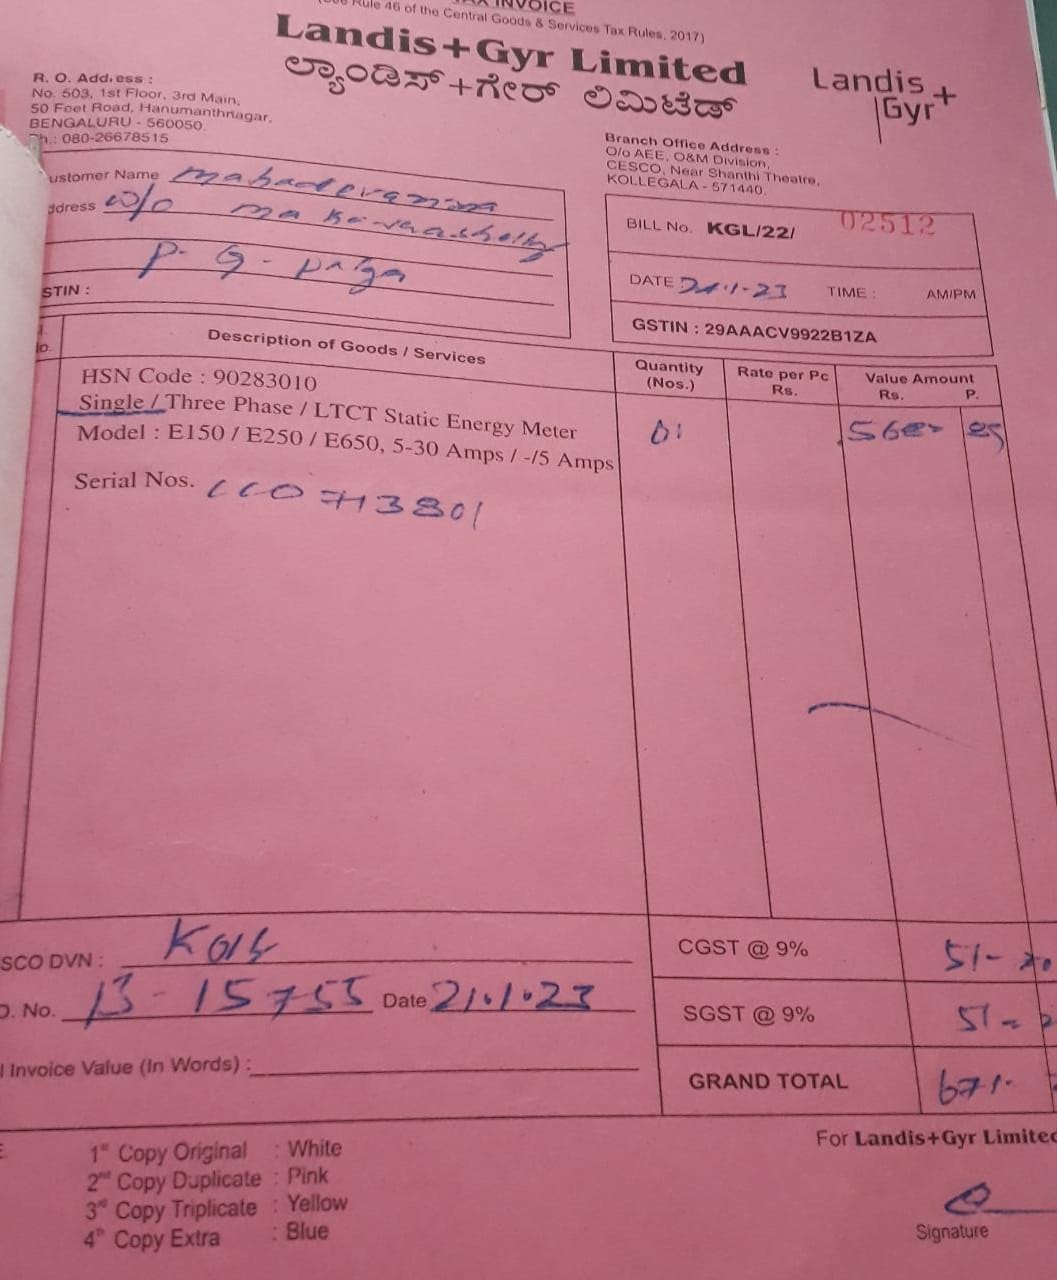 INVOICE
Rule 46 of the Central Goods & Services Tax Rules, 2017)
Landis+Gyr Limited
ಲ್ಯಾಂಡಿಸ್+ಗೇರ್ ಲಿಮಿಟೆಡ್
Landis+
Gyr
R. O. Address :
No. 503, 1st Floor, 3rd Main,
50 Feet Road, Hanumanthnagar,
BENGALURU - 560050.
Ph.: 080-26678515
Branch Office Address :
O/o AEE, O&M Division,
CESCO, Near Shanthi Theatre,
KOLLEGALA - 571440.
ustomer Name mahadevamma
ddress w/o
P. G. palya
STIN :
BILL No. KGL/22/ 02512
DATE 21.1-23 TIME : AM/PM
GSTIN : 29AAACV9922B1ZA
Description of Goods / Services
Quantity (Nos.)
Rate per Pc Rs.
Value Amount Rs. P.
HSN Code : 90283010
Single / Three Phase / LTCT Static Energy Meter
01
Model : E150 / E250 / E650, 5-30 Amps / -/5 Amps
Serial Nos.
SCO DVN :
CGST @ 9% 51-
O. No. 13-15755 Date 21.1.23
SGST @ 9% 51-
l Invoice Value (In Words) :
GRAND TOTAL 671.
For Landis+Gyr Limited
1st Copy Original : White
2nd Copy Duplicate : Pink
3rd Copy Triplicate : Yellow
4th Copy Extra : Blue
Signature